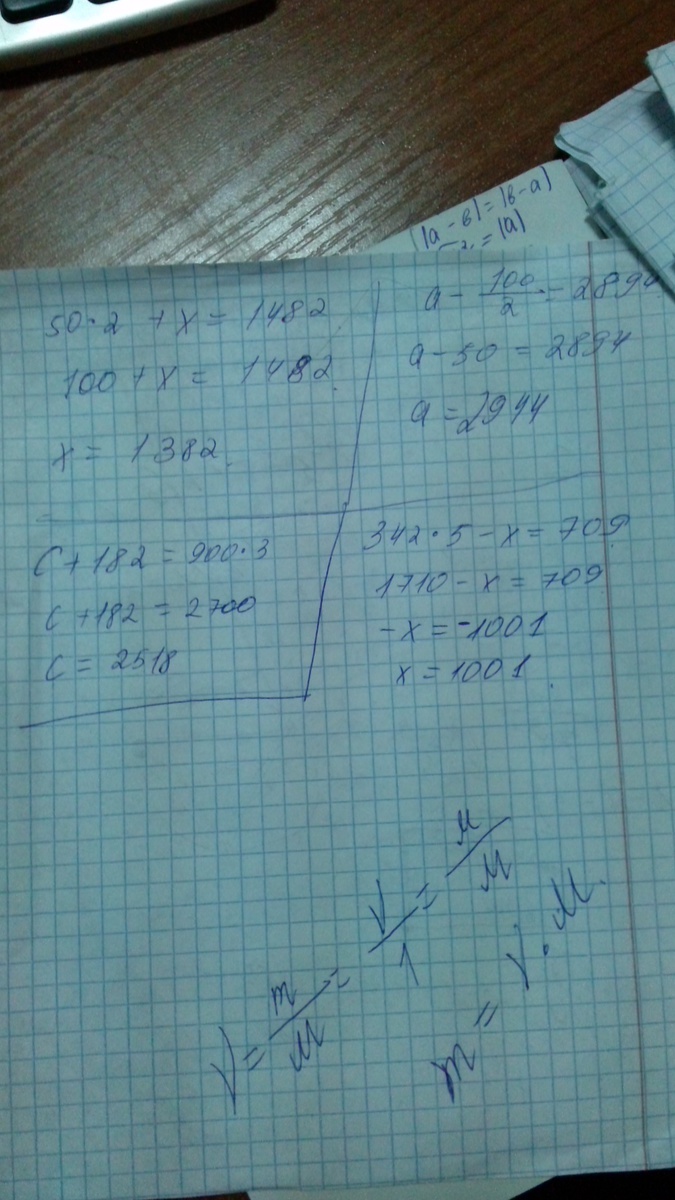 |a - в| = |в - a|
= |a|
50·2 + x = 1482
100 + x = 1482
x = 1382
a - 100/2 = 2894
a - 50 = 2894
a = 2944
c + 182 = 900·3
c + 182 = 2700
c = 2518
342·5 - x = 709
1710 - x = 709
-x = -1001
x = 1001
V = m/M = V/1 = м/M
m = V·M